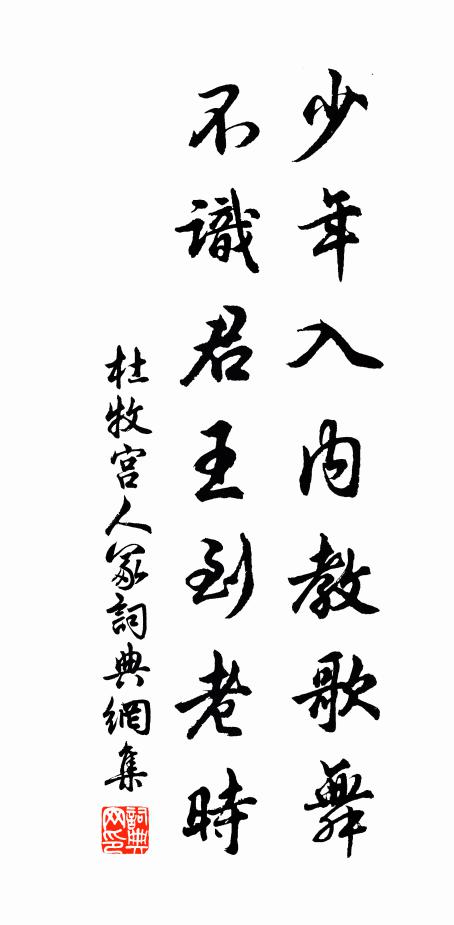 少年入内教歌舞
不識君王到老時
杜牧宫人冢詞典網集
詞典网印